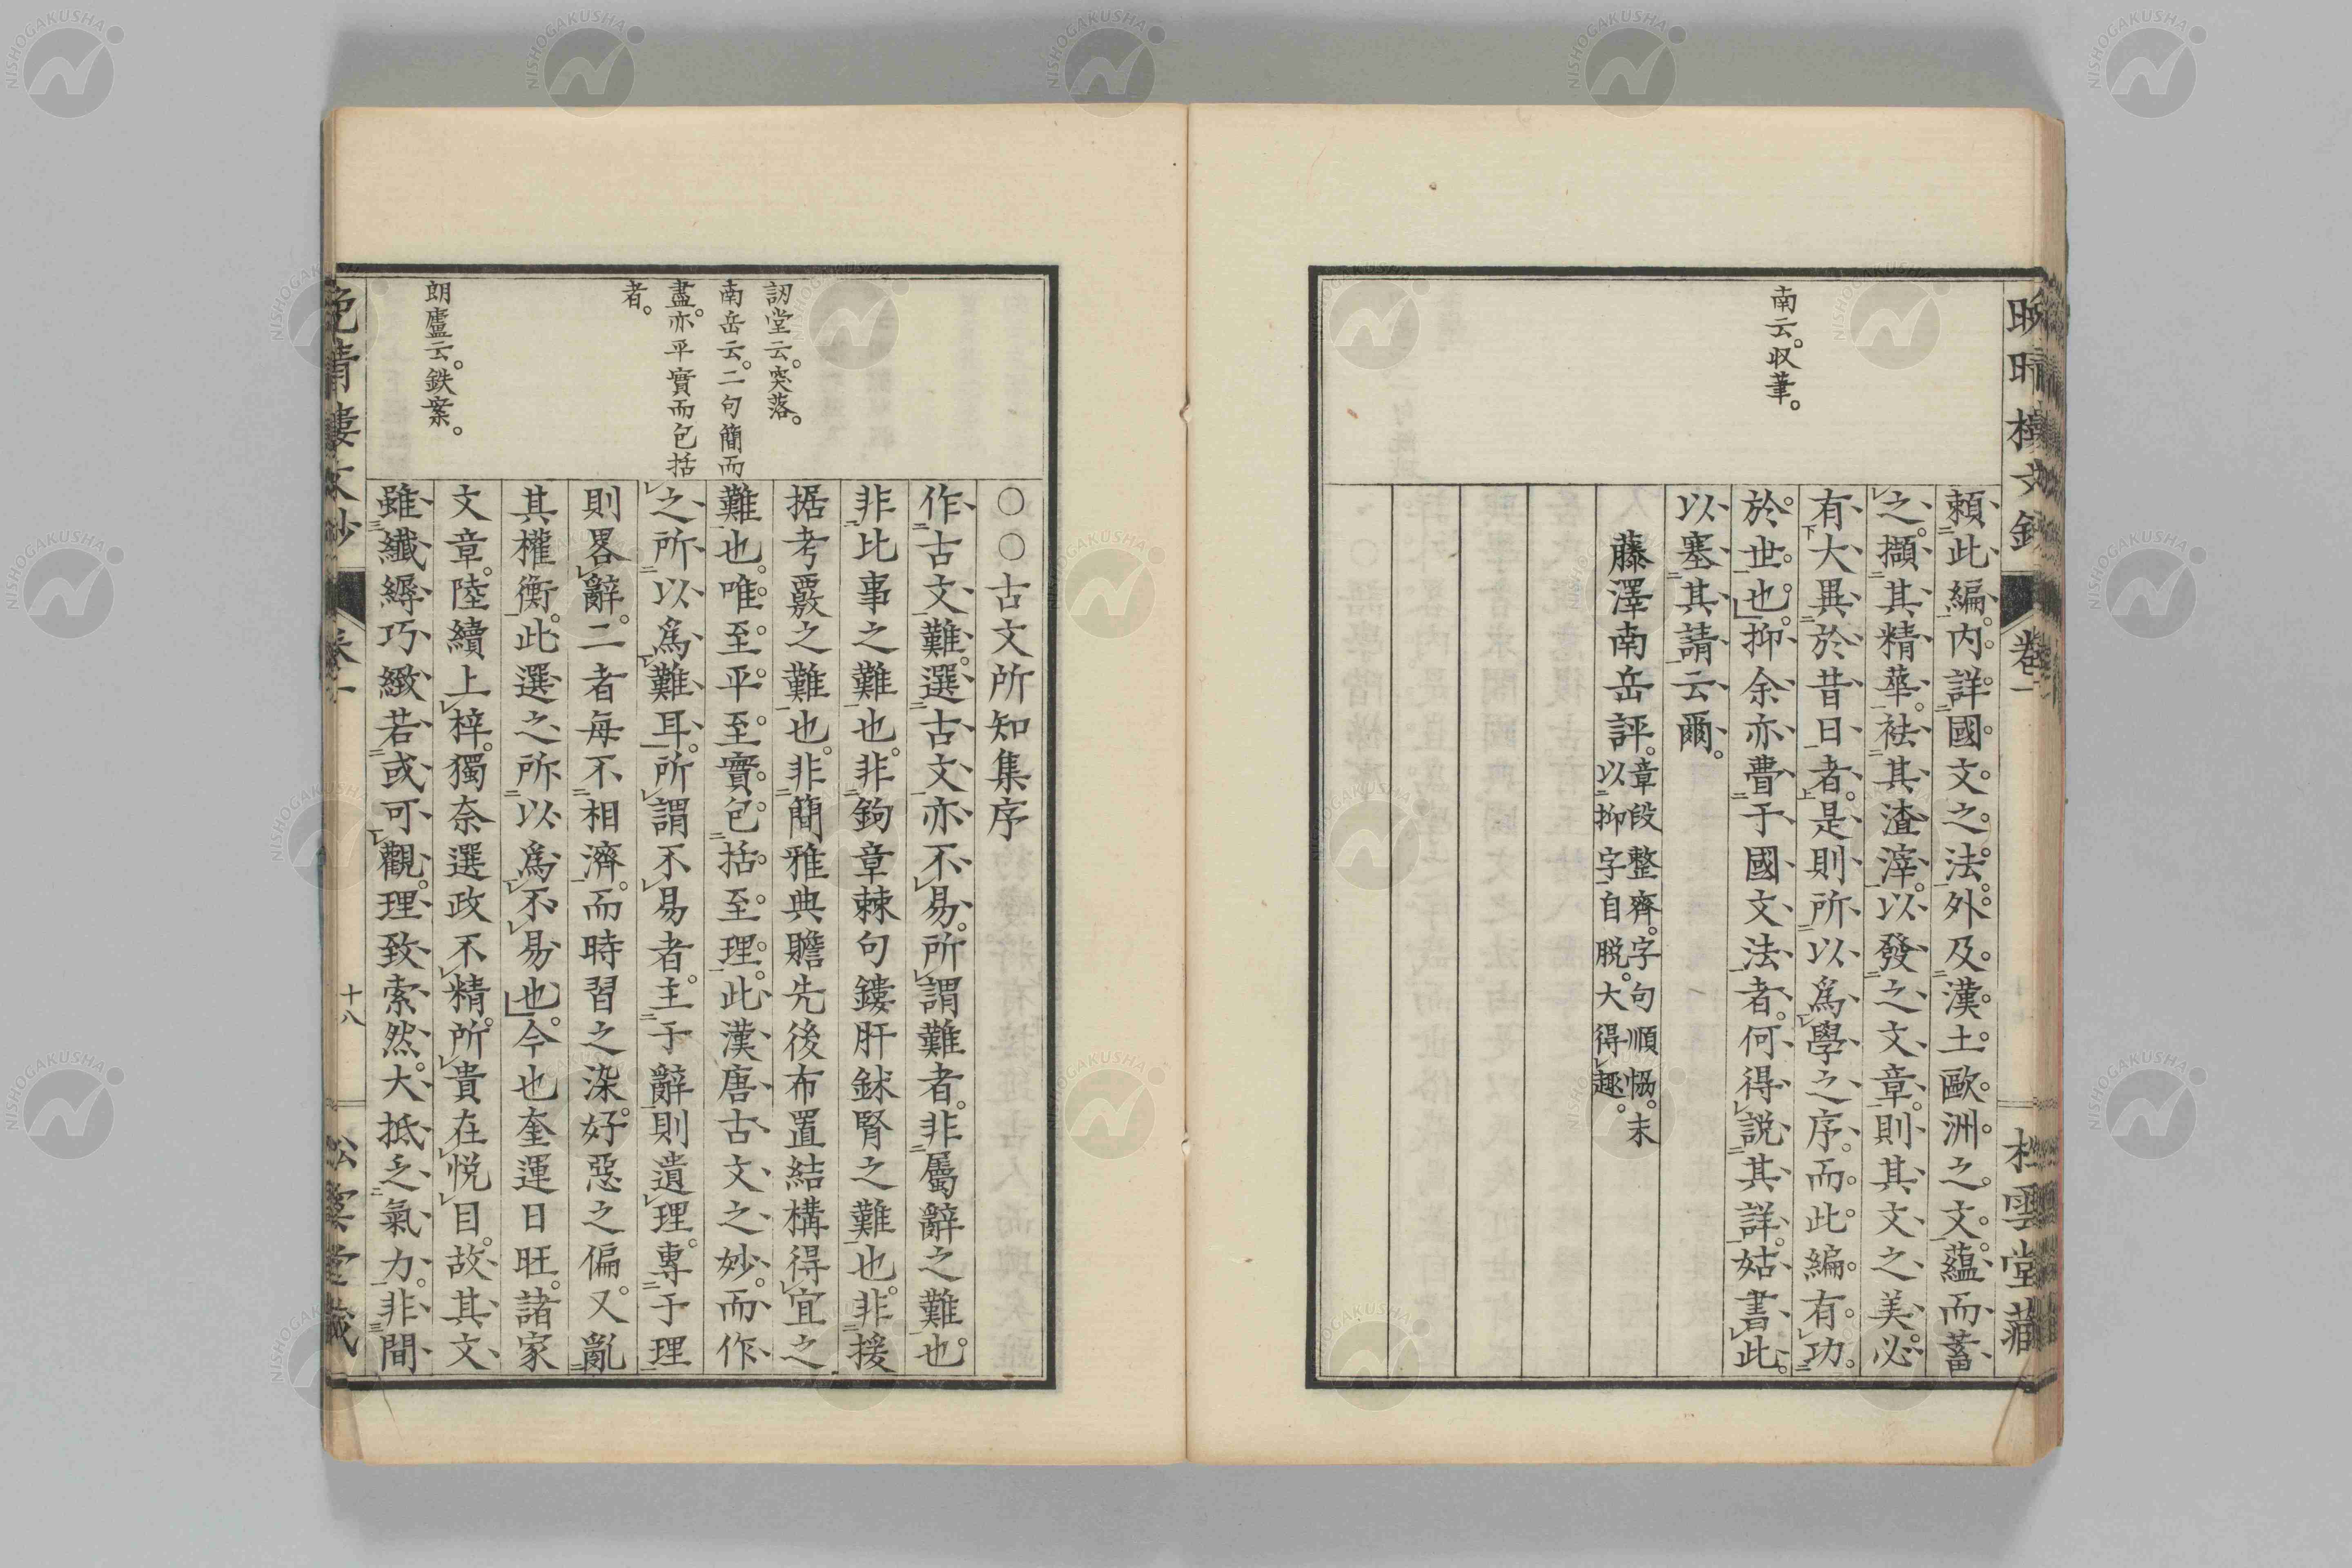 南云。収筆。
頼此編。内詳國文之法。外及漢土歐洲之文。蘊而蓄
之。擷其精華。袪其渣滓。以發之文章。則其文之美。必
有大異於昔日者。是則所以爲學之序。而此編有功
於世也。抑余亦嘗于國文法者。何得説其詳。姑書此。
以塞其請云爾。
藤澤南岳評。章段整齊。字句順恊。末
以抑字自脱。大得趣。
卷一
雲堂藏
訒堂云。突落。
南岳云。二句簡而
盡。亦平實而包括
者。
朗廬云。鉄案。
〇〇古文所知集序
作古文難。選古文亦不易。所謂難者。非屬辭之難也。
非比事之難也。非鉤章棘句鏤肝鉥腎之難也。非援
据考覈之難也。非簡雅典贍先後布置結構得宜之
難也。唯至平至實。包括至理。此漢唐古文之妙。而作
之所以爲難耳。所謂不易者。主于辭則遺理。專于理
則畧辭。二者毎不相濟。而時習之染。好惡之偏。又亂
其權衡。此選之所以爲不易也。今也奎運日旺。諸家
文章。陸續上梓。獨奈選政不精。所貴在悦目。故其文
雖纖縟巧緻若或可觀。理致索然。大抵乏氣力。非間
十八